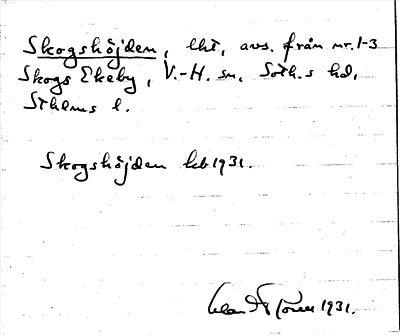 Skogshöjden, lht, avs. från nr. 1-3
Skogs Ekeby, V.-H. sn, Soth.s hd,
Sthlms l.
Skogshöjden kb 1931.
1931.